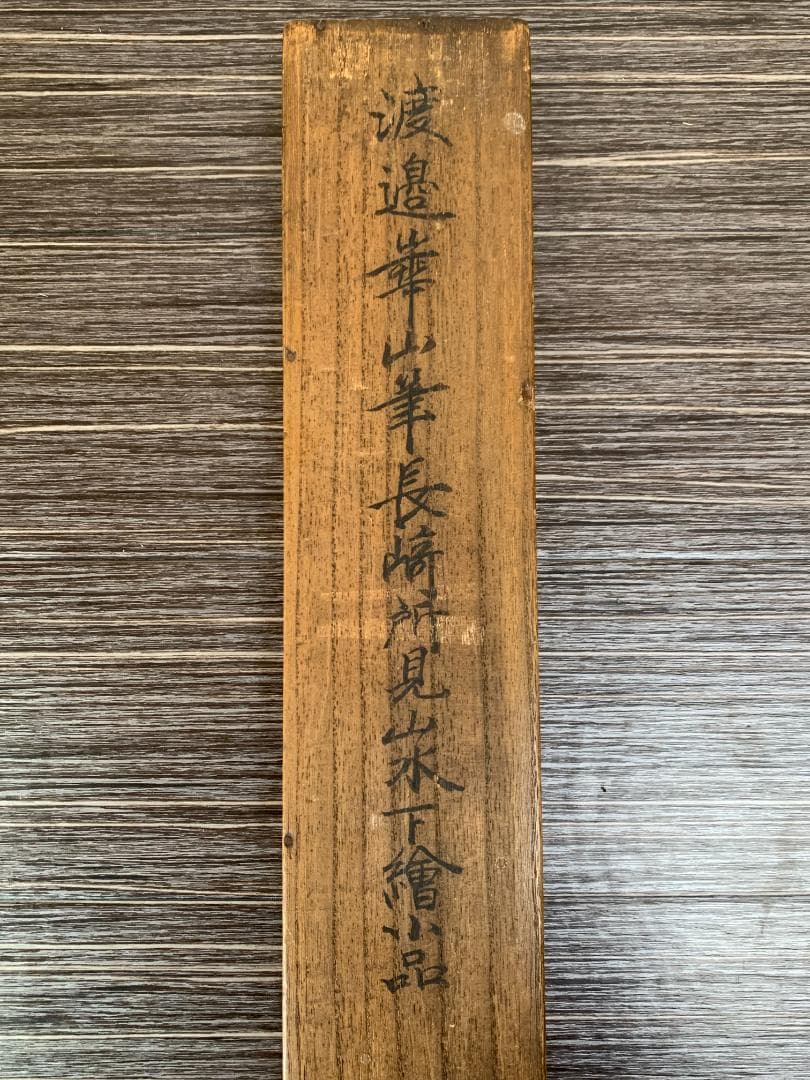 渡邉崋山筆長﨑所見山水下繪小品